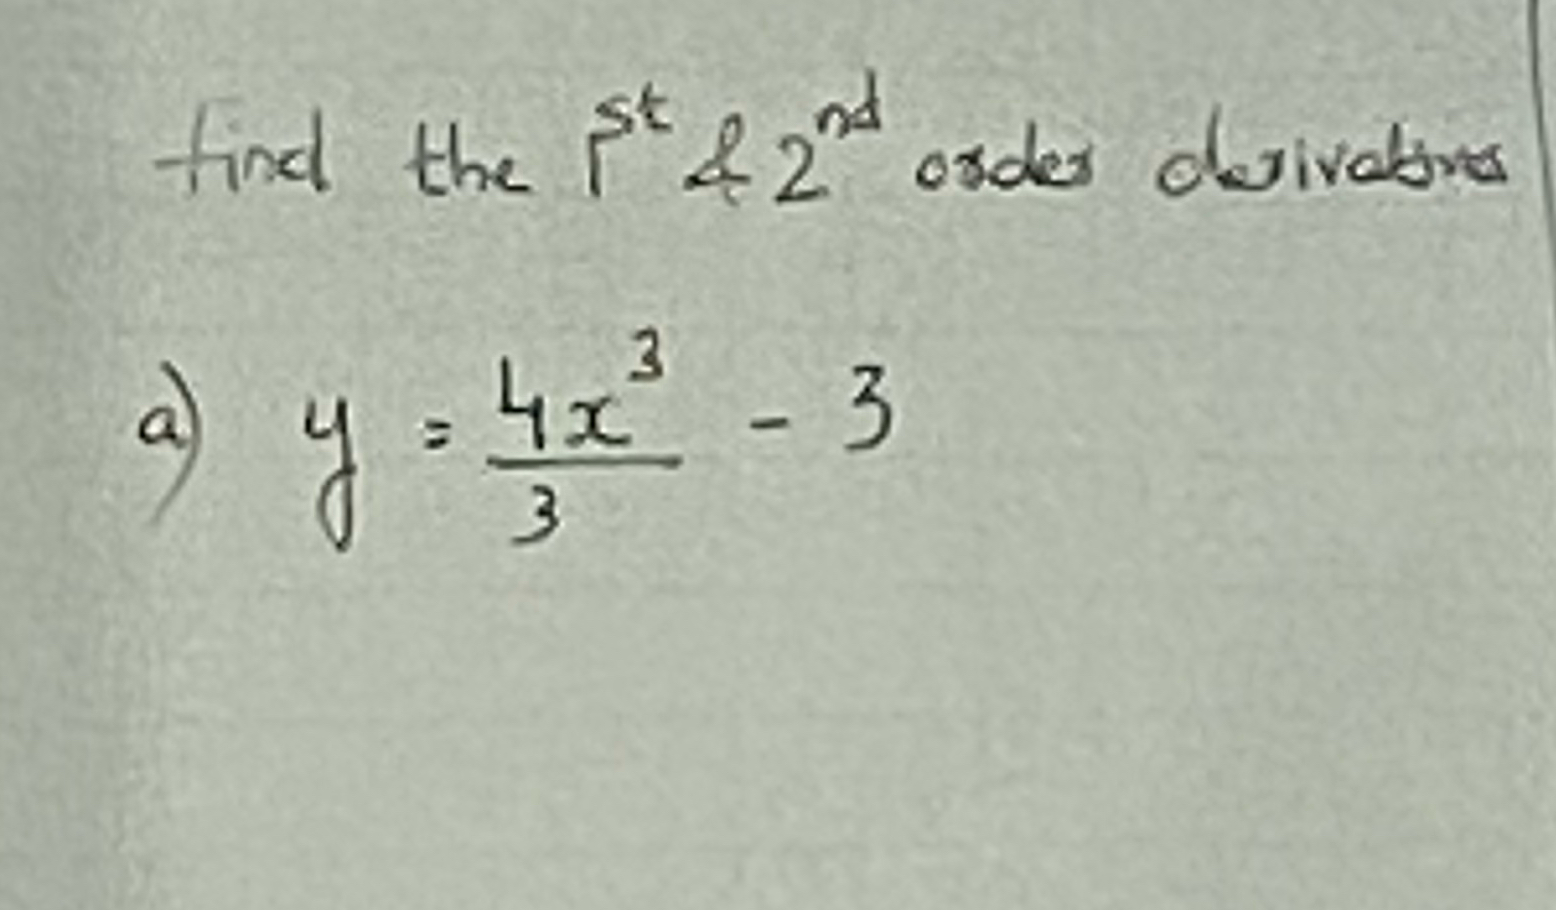 find the 1st & 2nd order derivatives
a) y = 4x³/3 - 3